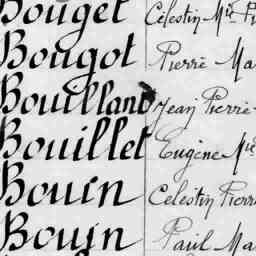 Bouget Célestin Mie
Bougot Pierre Ma
Bouilland Jean Pierre
Bouillet Eugène Mie
Bouin Célestin Pierre
Bouin Paul Ma